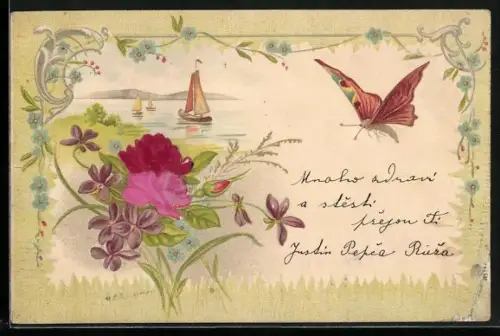 Mnoho zdraví
a stěstí
přejou Ti
Justin Pepča Růža